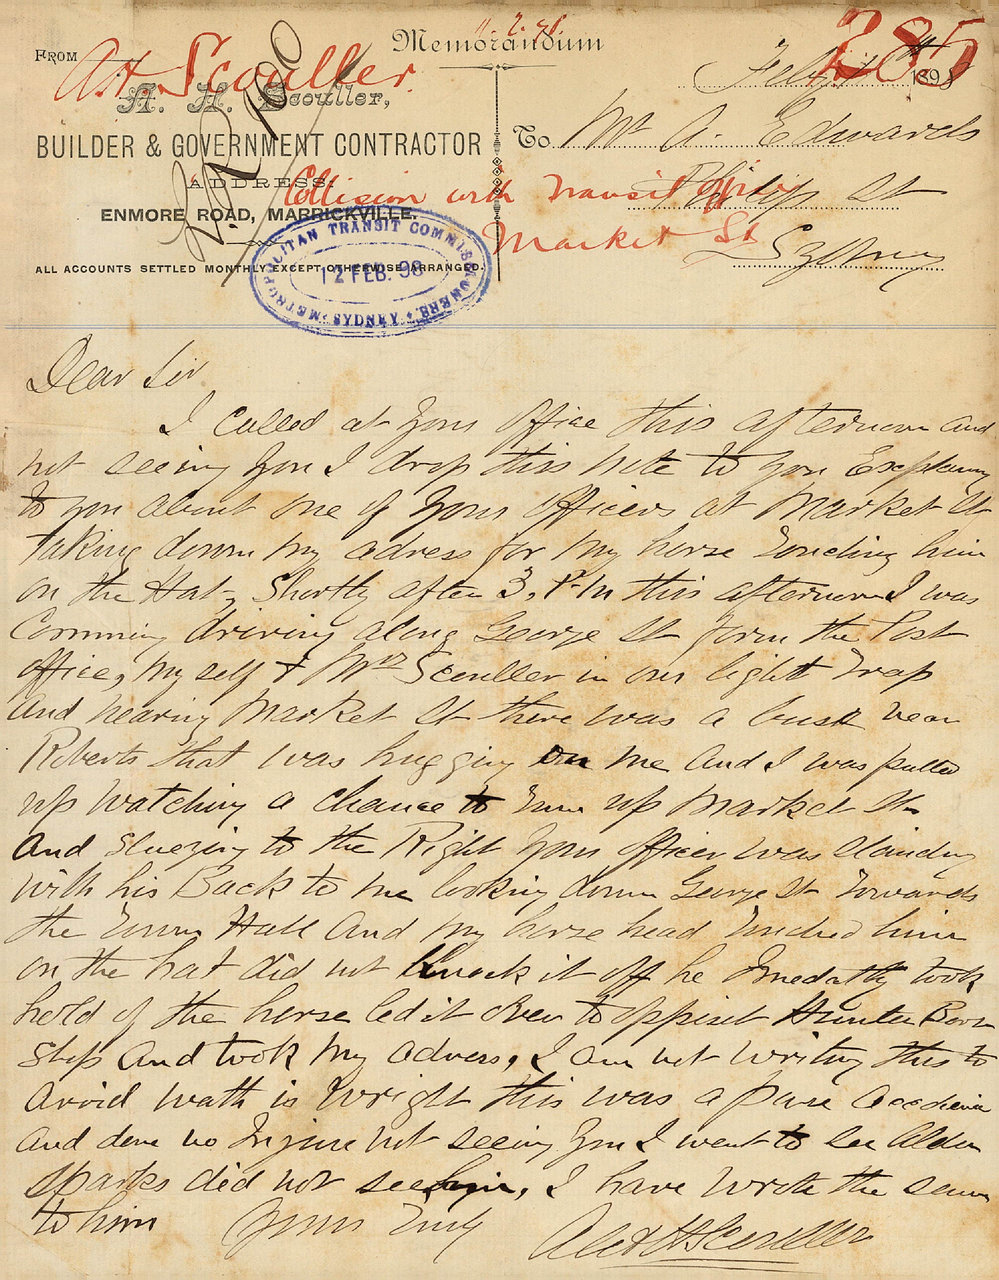 11.2.98.
285
Memorandum
FROM
AH Scouller.
A. H. Scouller,
BUILDER & GOVERNMENT CONTRACTOR
ADDRESS:
ENMORE ROAD, MARRICKVILLE.
ALL ACCOUNTS SETTLED MONTHLY EXCEPT OTHERWISE ARRANGED.
Feby 1898
To Mr A. Edwards
Philip St
Sydney
Collision with Transit Officer
Market St
METROPOLITAN TRANSIT COMMISSIONERS
12 FEB. 98
SYDNEY
Dear Sir
I called at your office this afternoon and
not seeing you I drop this note to you Explaning
to you about one of your officers at Market St
taking down my adress for my horse touching him
on the Hat, Shortly after 3, P.m this afternoon I was
Comming driving along George St form the Post
office, my self & Mrs Scouller in our light trap
and nearing Market St there was a buss near
Roberts that was hugging on me and I was pulled
up watching a chance to turn up Market St
and sluezing to the Right your officer was standing
with his Back to me looking down George St towards
the Town Hall and my horse head touched him
on the hat did not knock it off he Imedatly took
hold of the horse led it over to oppiset Hunter Boot
Shop and took my adress, I am not writing this to
avoid wath is Wright this was a pure accident
and done no Injure not seeing you I went to see Alden
Sparks did not see him, I have wrote the same
to him Yours Truly
Alex H Scouller